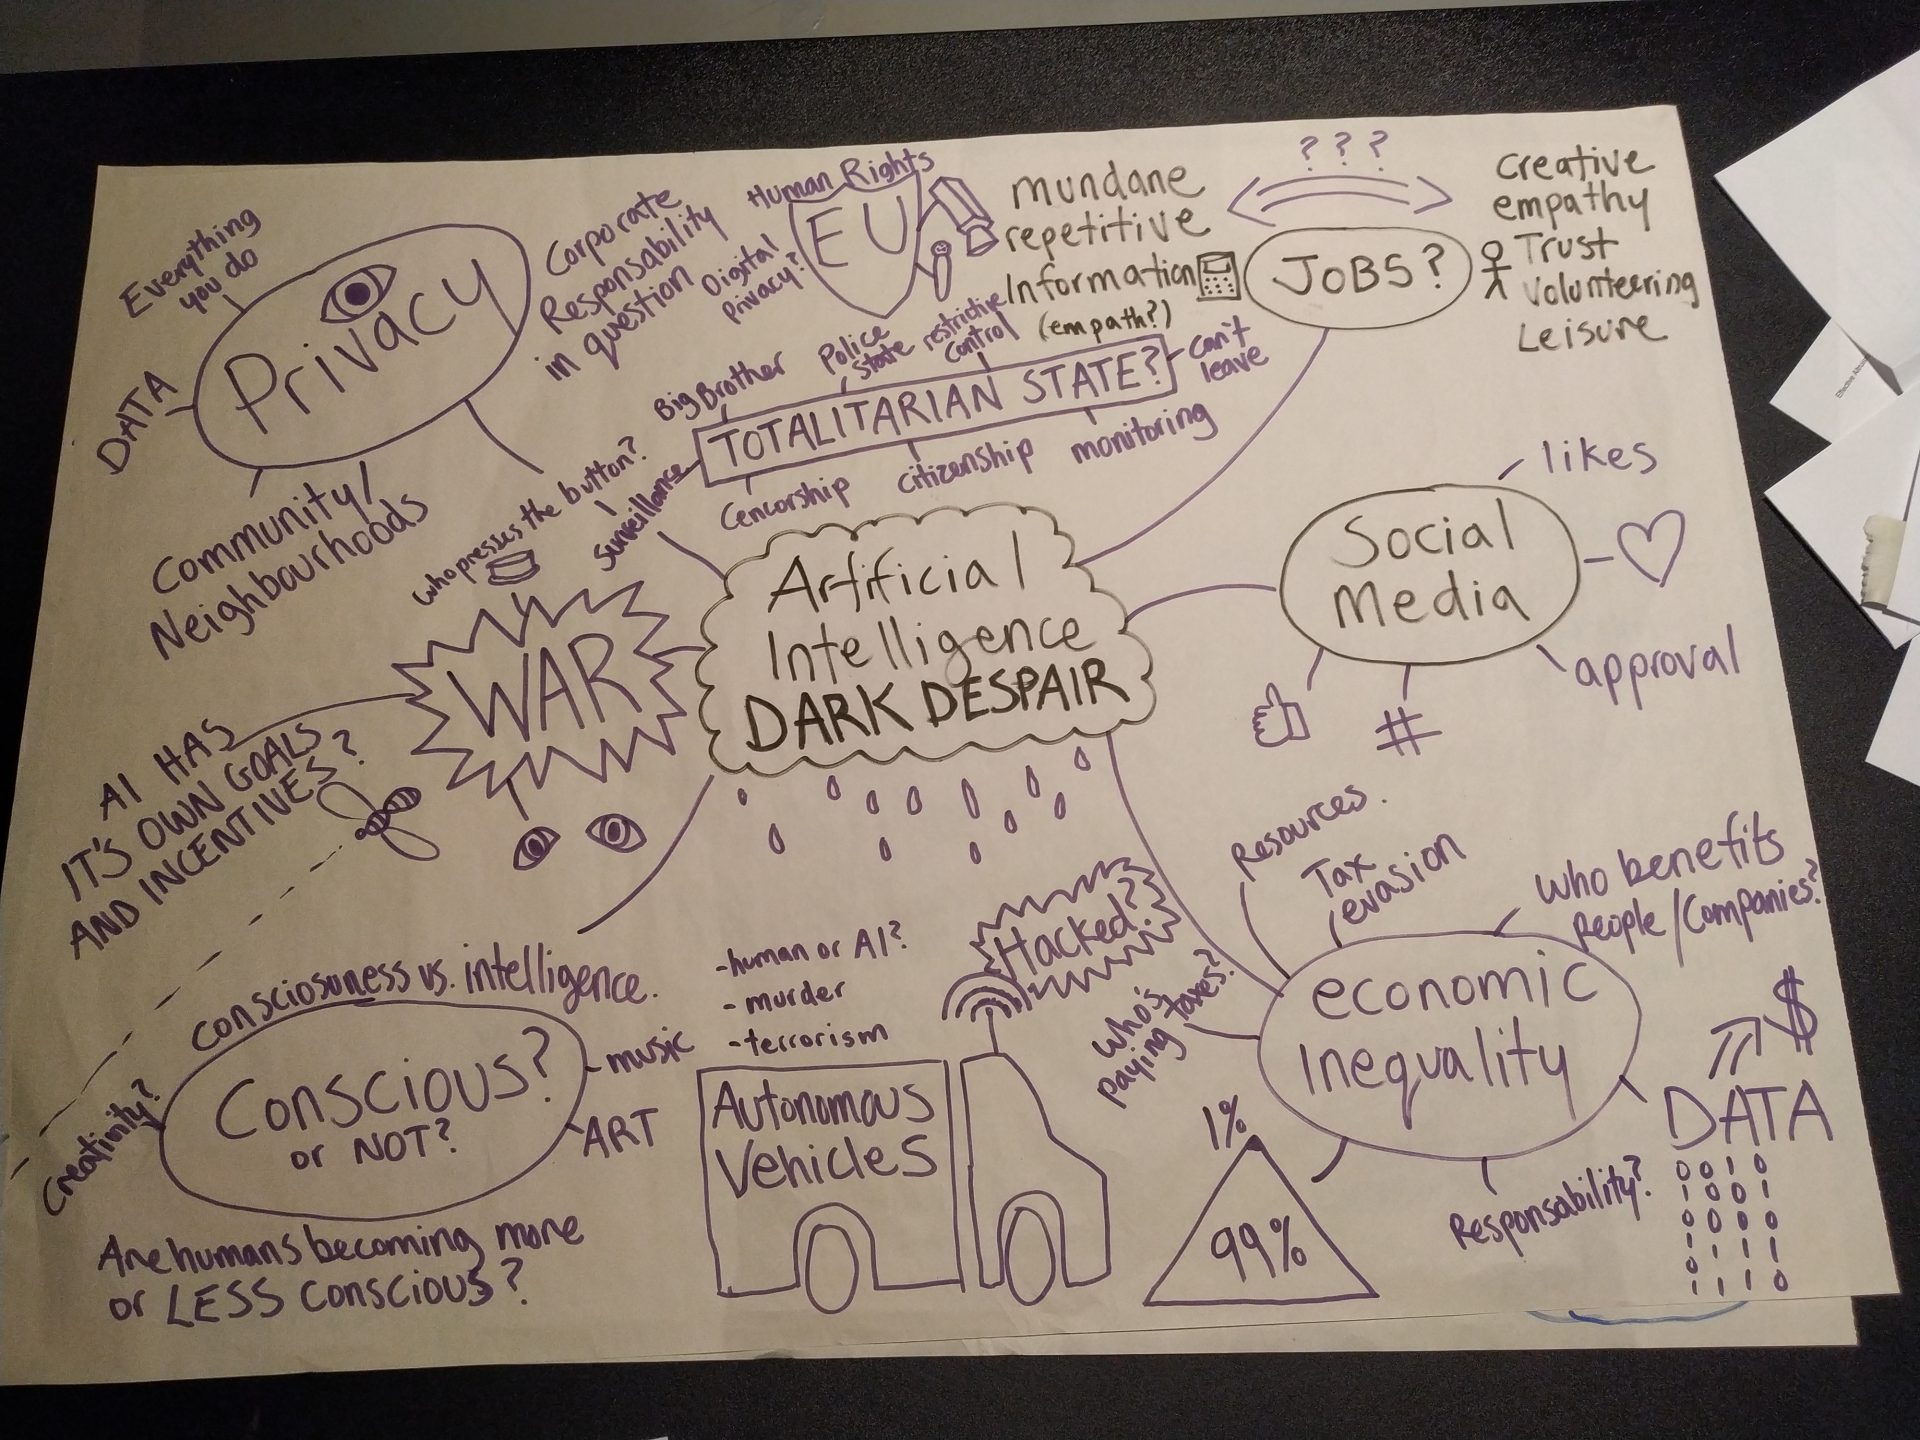 Everything
you do
DATA
Privacy
Community/
Neighbourhoods
Corporate
Responsability
in question
Digital
privacy?
Human Rights
EU
mundane
repetitive
Information
(empath?)
? ? ?
JOBS?
creative
empathy
Trust
Volunteering
Leisure
Big Brother
Police
State
restrictive
control
can't
leave
TOTALITARIAN STATE?
Surveillance
Cencorship
citizenship
monitoring
who presses the button?
WAR
AI HAS
IT'S OWN GOALS
AND INCENTIVES?
Artificial
Intelligence
DARK DESPAIR
Social
Media
likes
approval
#
Resources.
Tax
evasion
Who benefits
People/Companies?
economic
inequality
Who's
paying taxes?
1%
99%
Responsability?
$
DATA
0 0 1 0
1 0 0 1
0 0 0 0
1 1 1 1
0 1 1 0
consciosuness vs. intelligence.
Conscious?
or NOT?
music
ART
Creativity?
Are humans becoming more
or LESS conscious?
-human or AI?
- murder
-terrorism
Hacked?
Autonomous
Vehicles